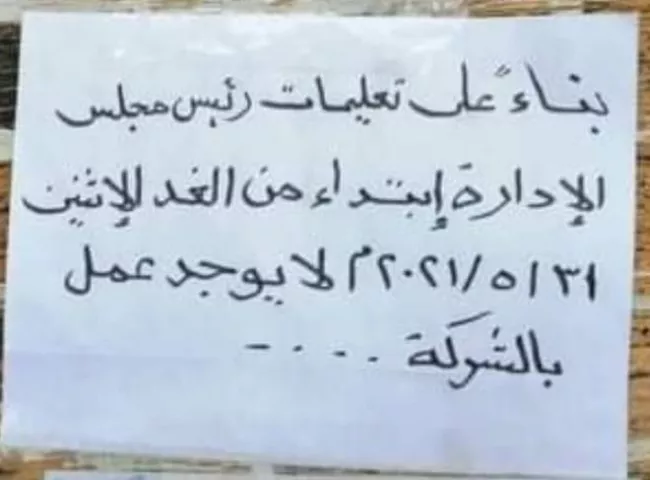 بناءً على تعليمات رئيس مجلس
الإدارة إبتداء من الغد الإثنين
٢٠٢١/٥/٣١م لا يوجد عمل
بالشركة . . . . –